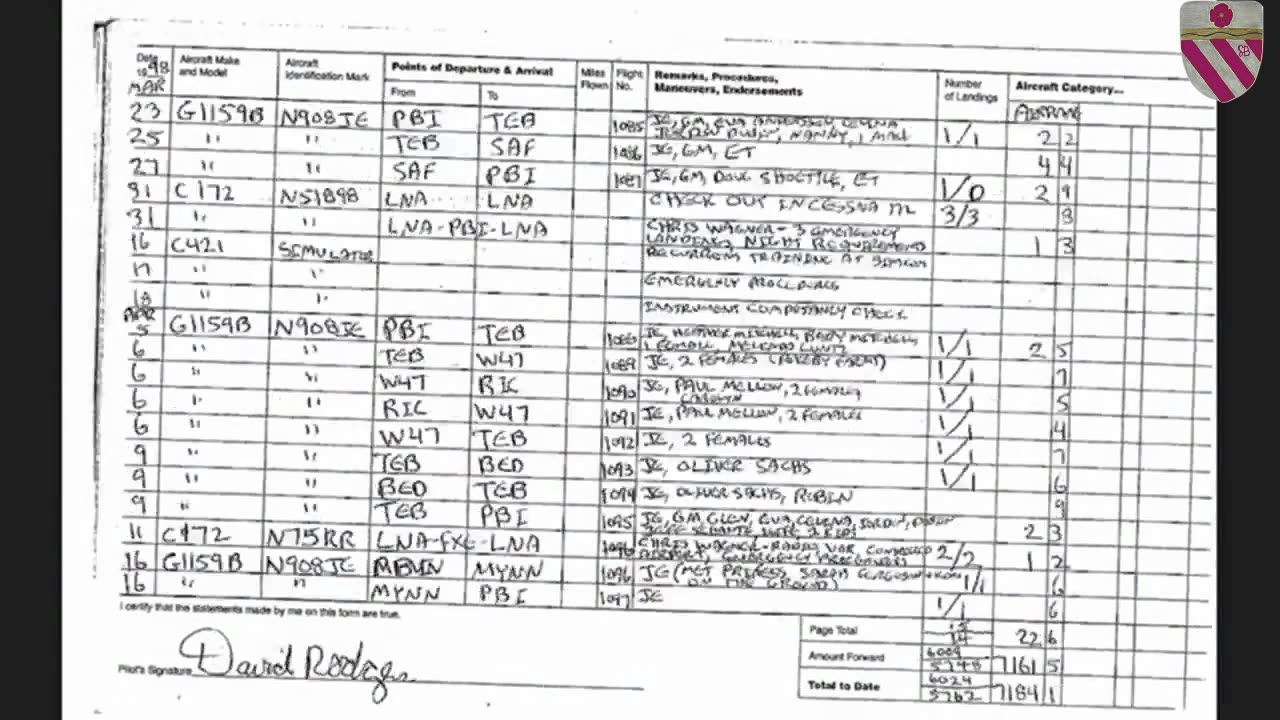 Date 19 98 Aircraft Make and Model Aircraft Identification Mark Points of Departure & Arrival From To Miles Flown Flight No. Remarks, Procedures, Maneuvers, Endorsements Number of Landings Aircraft Category...
MAR AIRPLANE
23 G1159B N908JE PBI TEB 1085 JE, GM, EVA ANDERSSON, CELINA, NANNY, 1 MALE 1/1 2 2
25 " " TEB SAF 1086 JE, GM, ET 4 4
27 " " SAF PBI 1087 JE, GM, DOUG SHOETTLE, ET 1/0 2 9
31 C172 N51898 LNA LNA CHECK OUT IN CESSNA 172 3/3 8
31 " " LNA-PBI-LNA CHRIS WAGNER - 3 EMERGENCY LANDINGS, NIGHT REQUIREMENTS 1 3
16 C421 SIMULATOR RECURRENT TRAINING AT SIMCOM
17 " " EMERGENCY PROCEDURES
18 " INSTRUMENT COMPETANCY CHECK
5 G1159B N908JE PBI TEB JE, HEATHER MITCHELL, BABY 1 FEMALE, 1/1 2 5
6 " " TEB W47 1089 JE, 2 FEMALES 1/1 7
6 " " W47 RIC 1090 JE, PAUL MELLON, 2 FEMALES 1/1 5
6 " " RIC W47 1091 JE, PAUL MELLON, 2 FEMALES 1/1 4
6 " " W47 TEB 1092 JE, 2 FEMALES 1/1 7
9 " " TEB BED 1093 JE, OLIVER SACHS 1/1 6
9 " " BED TEB 1094 JE, OLIVER SACHS, ROBIN 9
9 " " TEB PBI 1095 JE, GM, GLEN, EVA, CELENA, 2 KIDS 2 3
11 C172 N75RR LNA-FXE-LNA CHRIS WAGNER - RADAR, VOR, CONTROLLED AIRPORT, EMERGENCY PROCEDURES 2/2 1 2
16 G1159B N908JE MBMN MYNN 1096 JE (MET PRINCESS SARAH FERGUSON ON THE GROUND) 1/1 6
16 " " MYNN PBI 1097 JE 1/1 6
I certify that the statements made by me on this form are true.
Page Total 15 14 22 6
Amount Forward 6009 5748 7161 5
Total to Date 6024 5762 7184 1
Pilot's Signature David Rodgers